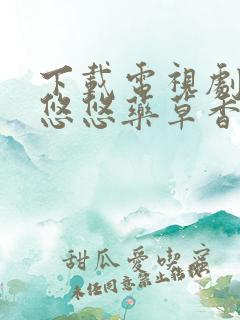 下載電視劇
悠悠藥草香
甜瓜愛喫宮
未經同意禁止轉標